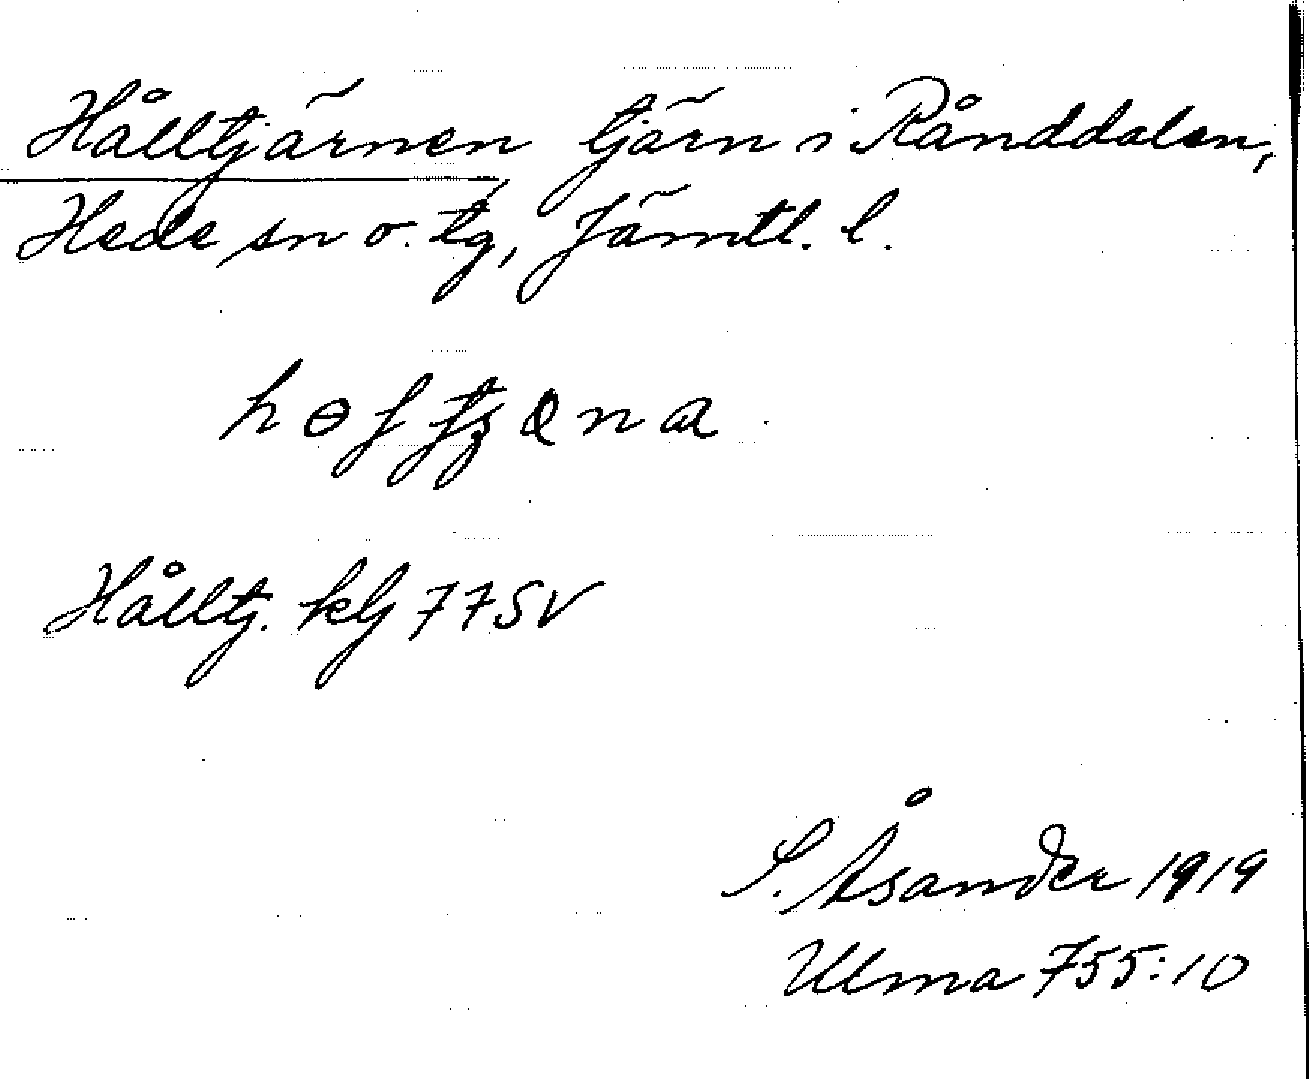 Hålltjärnen tjärn i Rånddalen,
Hede sn o. tg, Jämtl. l.
Hålltj. kbl 77SV
S. Åsander 1919
Ulma 755:10